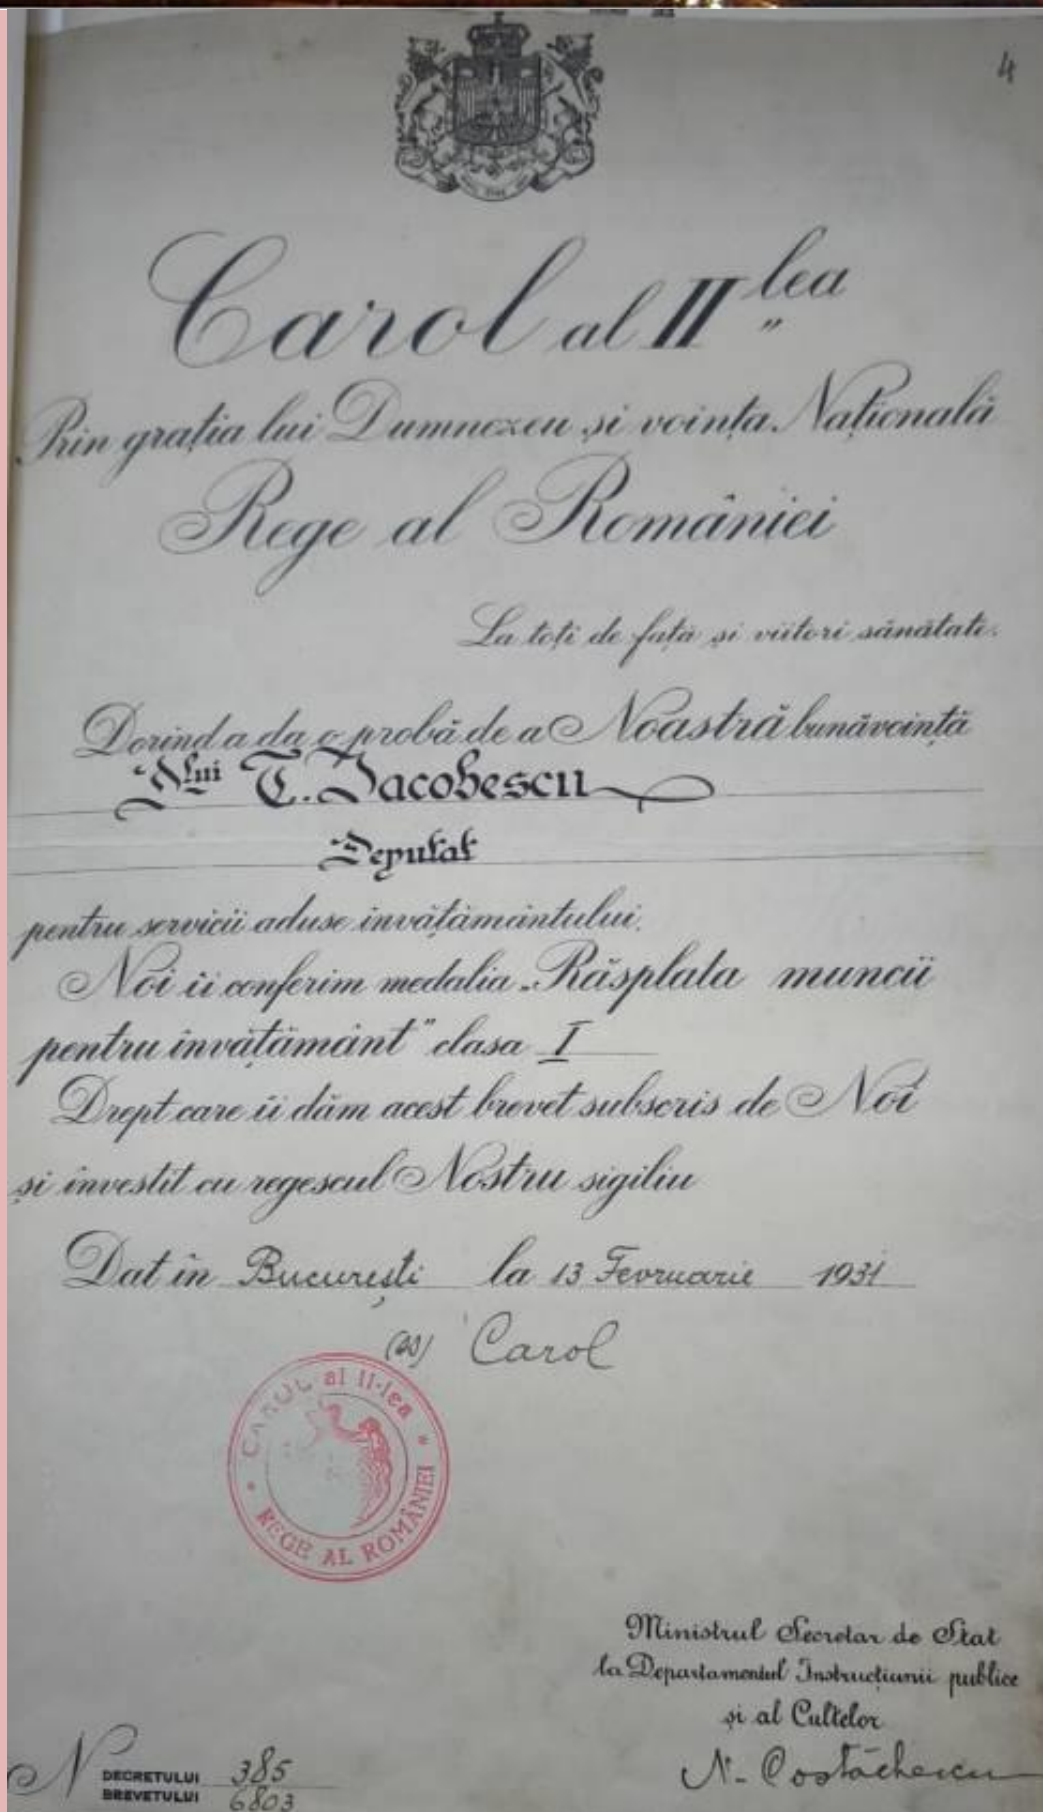 4
Carol al II lea
Prin grația lui Dumnezeu și voința Națională
Rege al României
La toți de față și viitori sănătate.
Dorind a da o probă de a Noastră bunăvoință
Dlui T. Iacobescu
Deputat
pentru servicii aduse învățământului.
Noi îi conferim medalia „Răsplata muncii
pentru învățământ” clasa I
Drept care îi dăm acest brevet subscris de Noi
și învestit cu regescul Nostru sigiliu
Dat în București la 13 Fevruarie 1931
(ss) Carol
CAROL al II-lea
REGE AL ROMÂNIEI
Ministrul Secretar de Stat
la Departamentul Instrucțiunii publice
și al Cultelor
N. Costăchescu
N DECRETULUI 385
BREVETULUI 6803